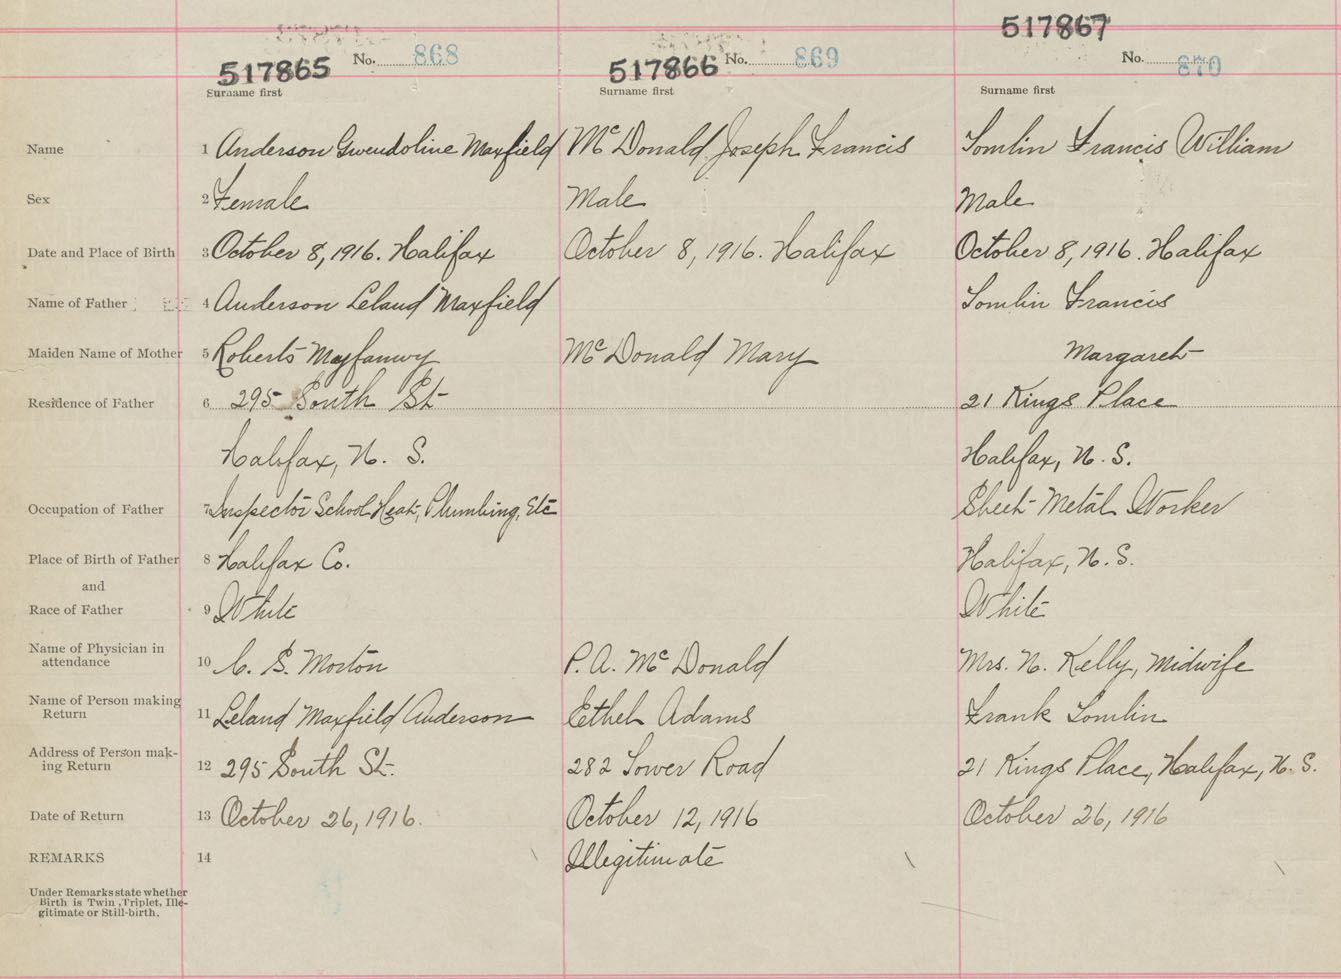 517867
517865 No. 868 517866 No. 869 No. 870
Surname first Surname first Surname first
Name 1 Anderson Gwendoline Maxfield McDonald Joseph Francis Tomlin Francis William
Sex 2 Female Male Male
Date and Place of Birth 3 October 8, 1916. Halifax October 8, 1916. Halifax October 8, 1916. Halifax
Name of Father 4 Anderson Leland Maxfield Tomlin Francis
Maiden Name of Mother 5 Roberts Mayfanwy McDonald Mary Margaret
Residence of Father 6 295 South St 21 Kings Place
Halifax, N. S. Halifax, N. S.
Occupation of Father 7 Inspector School Heat, Plumbing, Etc Sheet Metal Worker
Place of Birth of Father 8 Halifax Co. Halifax, N. S.
and
Race of Father 9 White White
Name of Physician in
attendance 10 C. S. Morton P. A. McDonald Mrs. N. Kelly, Midwife
Name of Person making
Return 11 Leland Maxfield Anderson Ethel Adams Frank Tomlin
Address of Person mak-
ing Return 12 295 South St. 282 Tower Road 21 Kings Place, Halifax, N. S.
Date of Return 13 October 26, 1916. October 12, 1916 October 26, 1916
REMARKS 14 Illegitimate
Under Remarks state whether
Birth is Twin, Triplet, Ille-
gitimate or Still-birth.